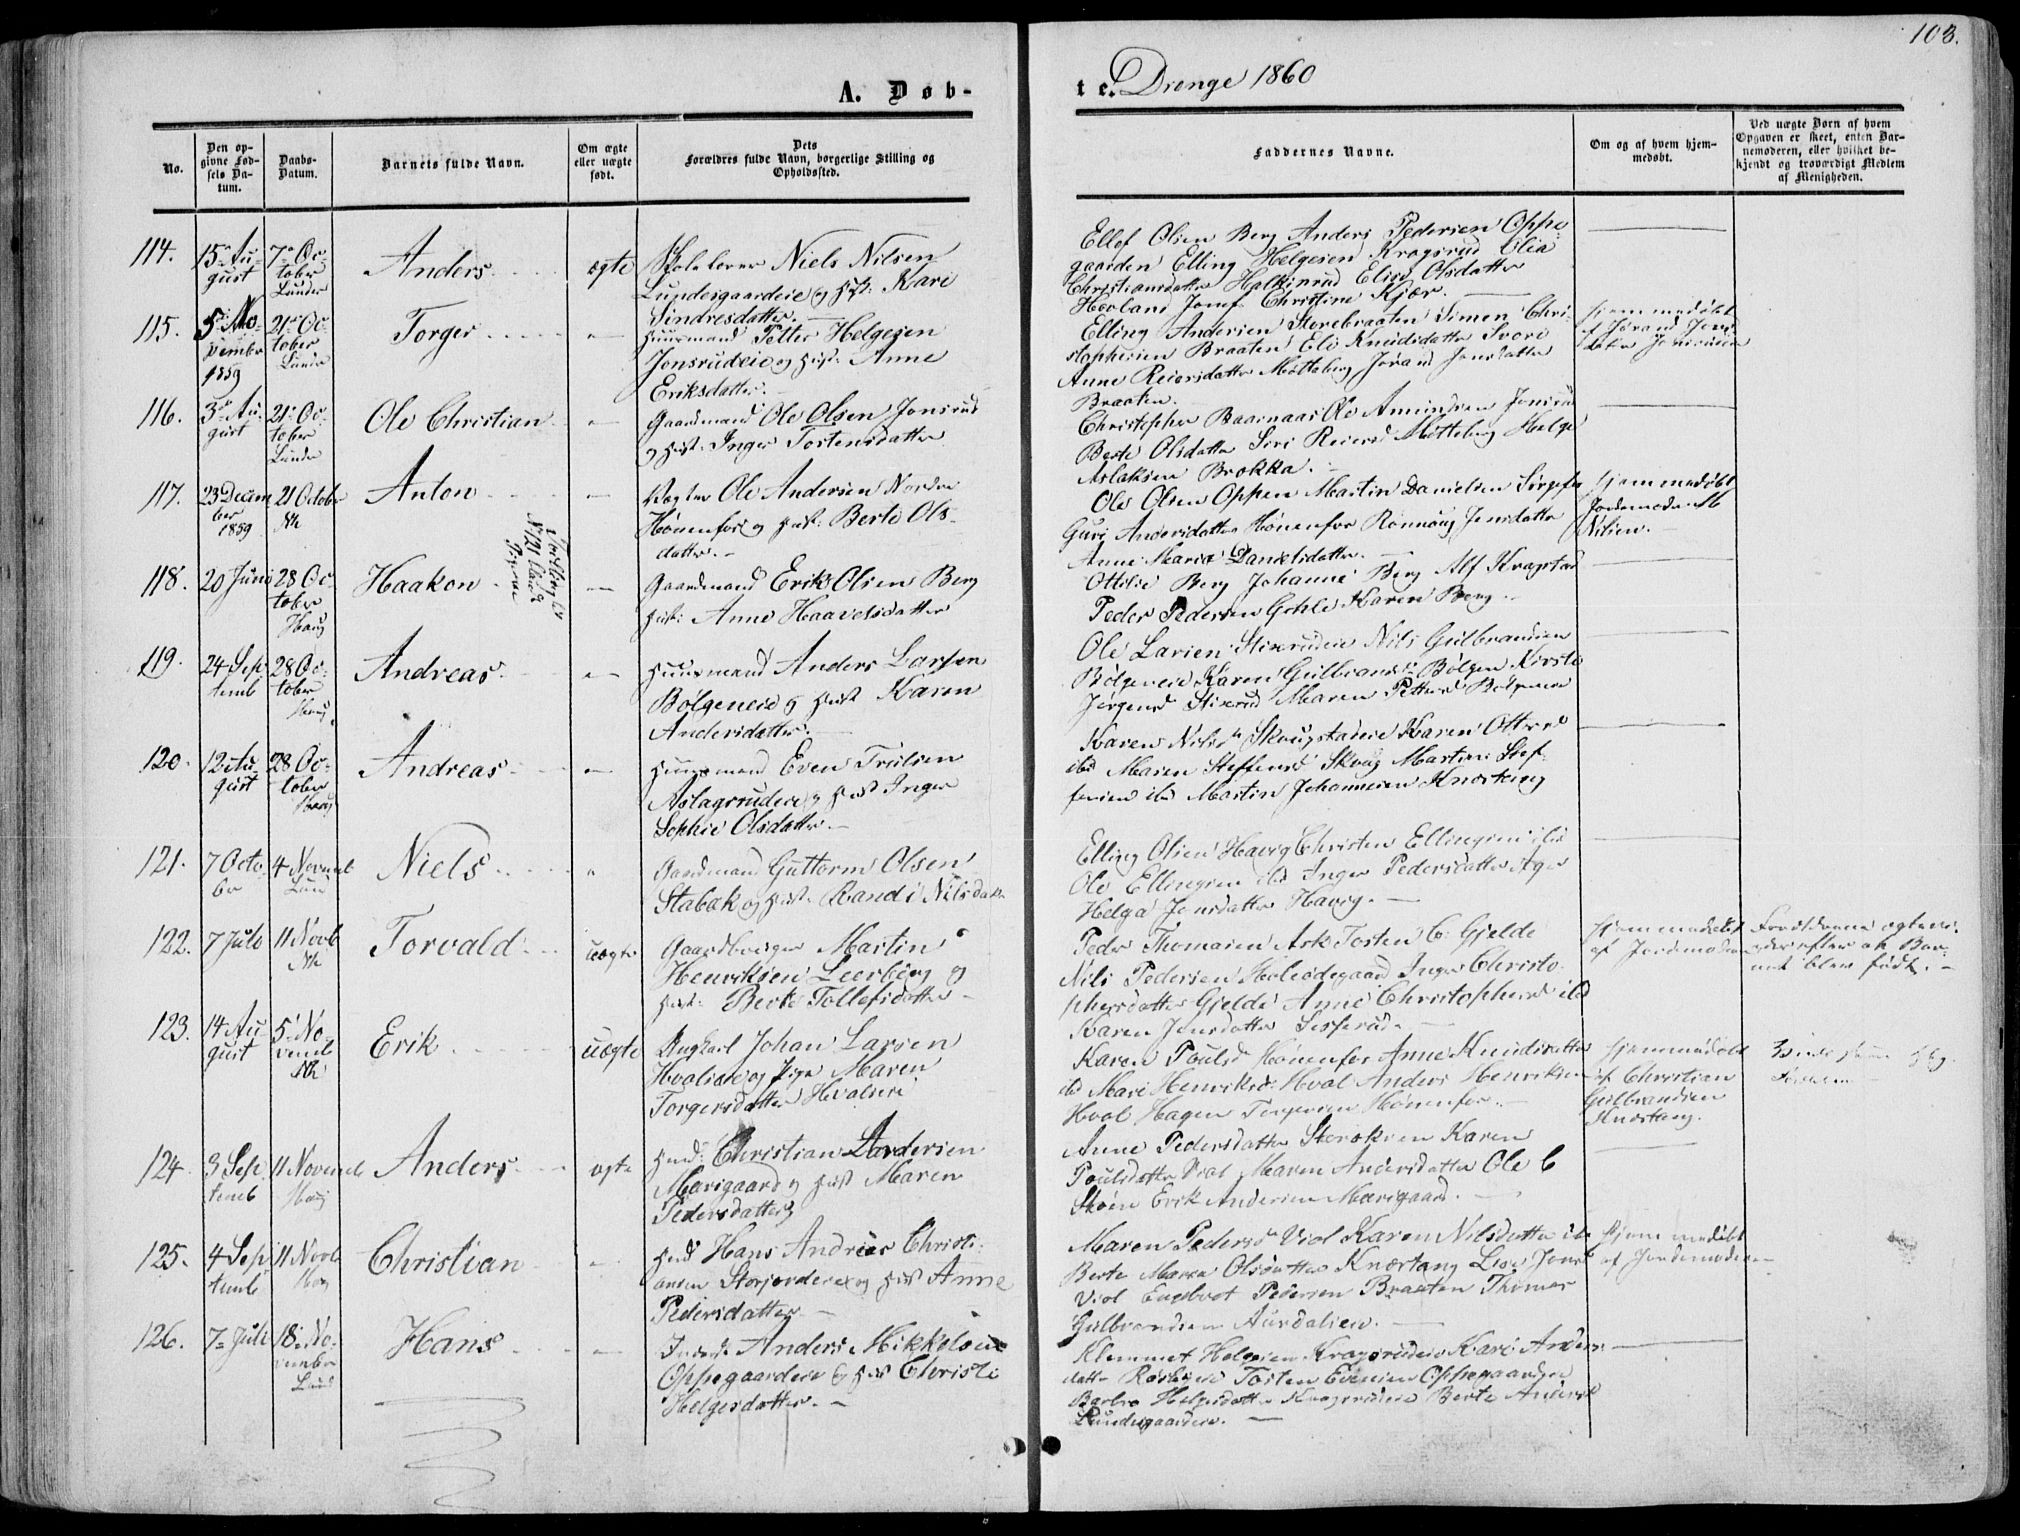 103.
A. Døb-
te. Drenge 1860
No.
Den op-
givne Fød-
sels Da-
tum.
Daabs-
Datum.
Barnets fulde Navn.
Om ægte
eller uægte
født.
Dets
Forældres fulde Navn, borgerlige Stilling og
Opholdssted.
Faddernes Navne.
Om og af hvem hjem-
medøbt.
Ved uægte Børn af hvem
Opgaven er skeet, enten Bar-
nemoderen, eller hvilket be-
kjendt og troværdigt Medlem
af Menigheden.
114.
15 Au-
gust
7 Oc-
tober
Lunder
Anders
ægte
Skolelærer Niels Nilsen
Lundesgaardeie og Hst: Kari
Sindresdatter.
Ellef Olsen Berg Anders Pedersen Oppe-
gaarden Elling Helgesen Kragsrud Olia
Christiansdatter Elise Olsdatter
Christine Kjær.
115.
5 No-
vember
1859
21 Oc-
tober
Lunder
Torger
Huusmand Petter Helgesen
Jonsrudeie og Hst: Anne
Eriksdatter.
Elling Andersen Sterebraaten Simen Chri-
stophersen Braaten Eli Knudsdatter
Anne Reiersdatter Møtteberg Jørand Jonsdatter
Braaten.
Hjemmedøbt
af Jørand Jons-
datter
116.
3 Au-
gust
21 Oc-
tober
Lunder
Ole Christian
Gaardmand Ole Olsen Jonsrud
og Hst: Inger Tostensdatter
Christopher Ole Amundsen Jonsrud
Berte Olsdatter Siri Reiersd Møtteberg Helge
Aslaksen Brokka.
117.
23 Decem
ber
1859
21 Octobr
Nh
Anton
Vægter Ole Andersen Nordre
Hønenfos og Hst: Berte Ols-
datter.
Ole Olsen Oppen Martin Danielsen
Guri Andersdatter Hønenfos Rønnoug Jensdatter
Anne Marie Danielsdatter.
Hjemmedøbt
Jordemoder M
Nilsen.
118.
20 Juni
28 Oc-
tober
Haug
Haakon
Gaardmand Erik Olsen Berg
Hst: Anne Haavelsdatter
Ottilie Berg Johanne Berg Alf Kragstad
Peder Pedersen Gohle Karen Berg.
119.
24 Sep
temb
28 Oc-
tober
Haug
Andreas
Huusmand Anders Larsen
Bølgeneie og Hst Karen
Andersdatter.
Ole Larsen Stixrudeie Nils Gulbrandsen
Bølgeneie Karen Gulbransd Bølgen Kirsti
Jørgensd Stixrud Maren Pettersd Bølgeneie
120.
12 Au-
gust
28 Oc-
tober
Haug
Andreas
Huusmand Even Trulsen
Aslagsrudeie og Hst Inger
Sophie Olsdatter.
Karen Nilsd Skougstadeie Karen Ottersd
ibd Maren Steffensd Skoug Martin Stef-
fensen ibd Martin Johannesen Knæstang
121.
7 Octo-
br
4 Novemb
Lund
Niels
Gaardmand Guttorm Olsen
Stabæk og Hst: Randi Nilsdatr
Elling Olsen Havig Christen Ellingsen ibd
Ole Ellingsen ibd Inger Pedersdatter Ager
Helga Jonsdatter Havig.
122.
7 Juli
11 Novb
Nh
Torvald
uægte
Gaardbruger Martin
Henriksen Leerberg og
Hst: Berte Tollefsdatter
Peder Thomasen Ask Tosten C. Gjelde
Nils Pedersen Inger Christo-
phersdatter Gjelde Anne Christophersd ibd
Karen Jensdatter
Hjemmedøbt
af Jordemoderen
Forældrene ægtevi-
ede efter at Bar-
net blev født.
123.
14 Au
gust
5 No-
vemb
Nh
Erik
uægte
Ungkarl Johan Larsen
og Pige Maren
Torgersdatter Hvalseie
Karen Poulsd Hønenfos Anne Knudsdatter
ibd Mari Henriksd Hval Anders Henriksen
Hval Hagen Hønenfos.
Hjemmedøbt
af Christian
Gulbrandsen
Knæstang.
124.
3 Sep
temb
11 Novemb
Haug
Anders
ægte
Hmd: Christian Andersen
Mærigaard og Hst Maren
Pedersdatter
Anne Pedersdatter Karen
Poulsdatter Viol Maren Andersdatter Ole C
Erik Andersen Mærigaard.
125.
4 Sep
temb
11 Novb
Haug
Christian
Hmd Hans Andreas Christi-
ansen Storjordeie og Hst Anne
Pedersdatter
Maren Pedersd Viol Karen Nilsdatter ibd
Berte Maria Olsdatter Knæstang Lise Jonsd
Viol Engebret Pedersen Braaten Thomas
Gulbrandsen Aurdalien.
Hjemmedøbt
af Jordemoderen
126.
7 Juli
18 No-
vember
Lund
Hans
Anders Mikkelsen
Oppegaardeie og Hst Christi
Helgesdatter.
Klemmet Helgesen Kragsrudeie Kari Anders-
datter Tosten Evensen Oppegaarden
Barbro Helgesdatter Kragsrudeie Berte Andersd
Lundesgaardeie.